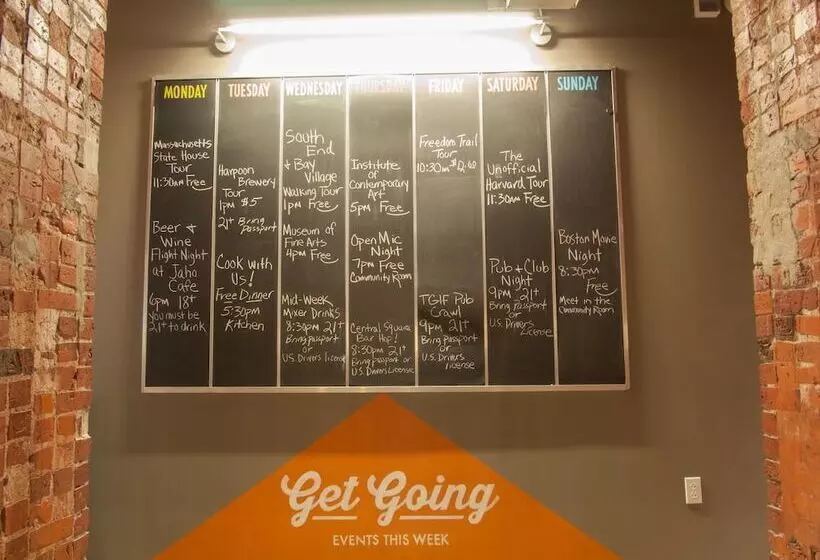 MONDAY
Massachusetts
State House
Tour
11:30am Free
Beer +
Wine
Flight Night
at Jaho
Cafe
6pm 18+
You must be
21+ to drink
TUESDAY
Harpoon
Brewery
Tour
1PM $5
21+ Bring
Passport
Cook with
Us!
Free Dinner
5:30pm
Kitchen
WEDNESDAY
South
End
+ Bay
Village
Walking Tour
1pm Free
Museum of
Fine Arts
4pm Free
Mid-Week
Mixer Drinks
8:30pm 21+
Bring Passport
or
U.S. Drivers license
THURSDAY
Institute
of
Contemporary
Art
5pm Free
Open Mic
Night
7pm Free
Community Room
Central Square
Bar Hop!
8:30pm 21+
Bring Passport or
U.S. Drivers License
FRIDAY
Freedom Trail
Tour
10:30am
TGIF Pub
Crawl
9pm 21+
Bring Passport
or
U.S. Drivers
license
SATURDAY
The
Unofficial
Harvard Tour
11:30am Free
Pub & Club
Night
9pm 21+
Bring Passport
or
U.S. Drivers
License
SUNDAY
Boston Movie
Night
8:30pm
Free
Meet in the
Community Room
Get Going
EVENTS THIS WEEK